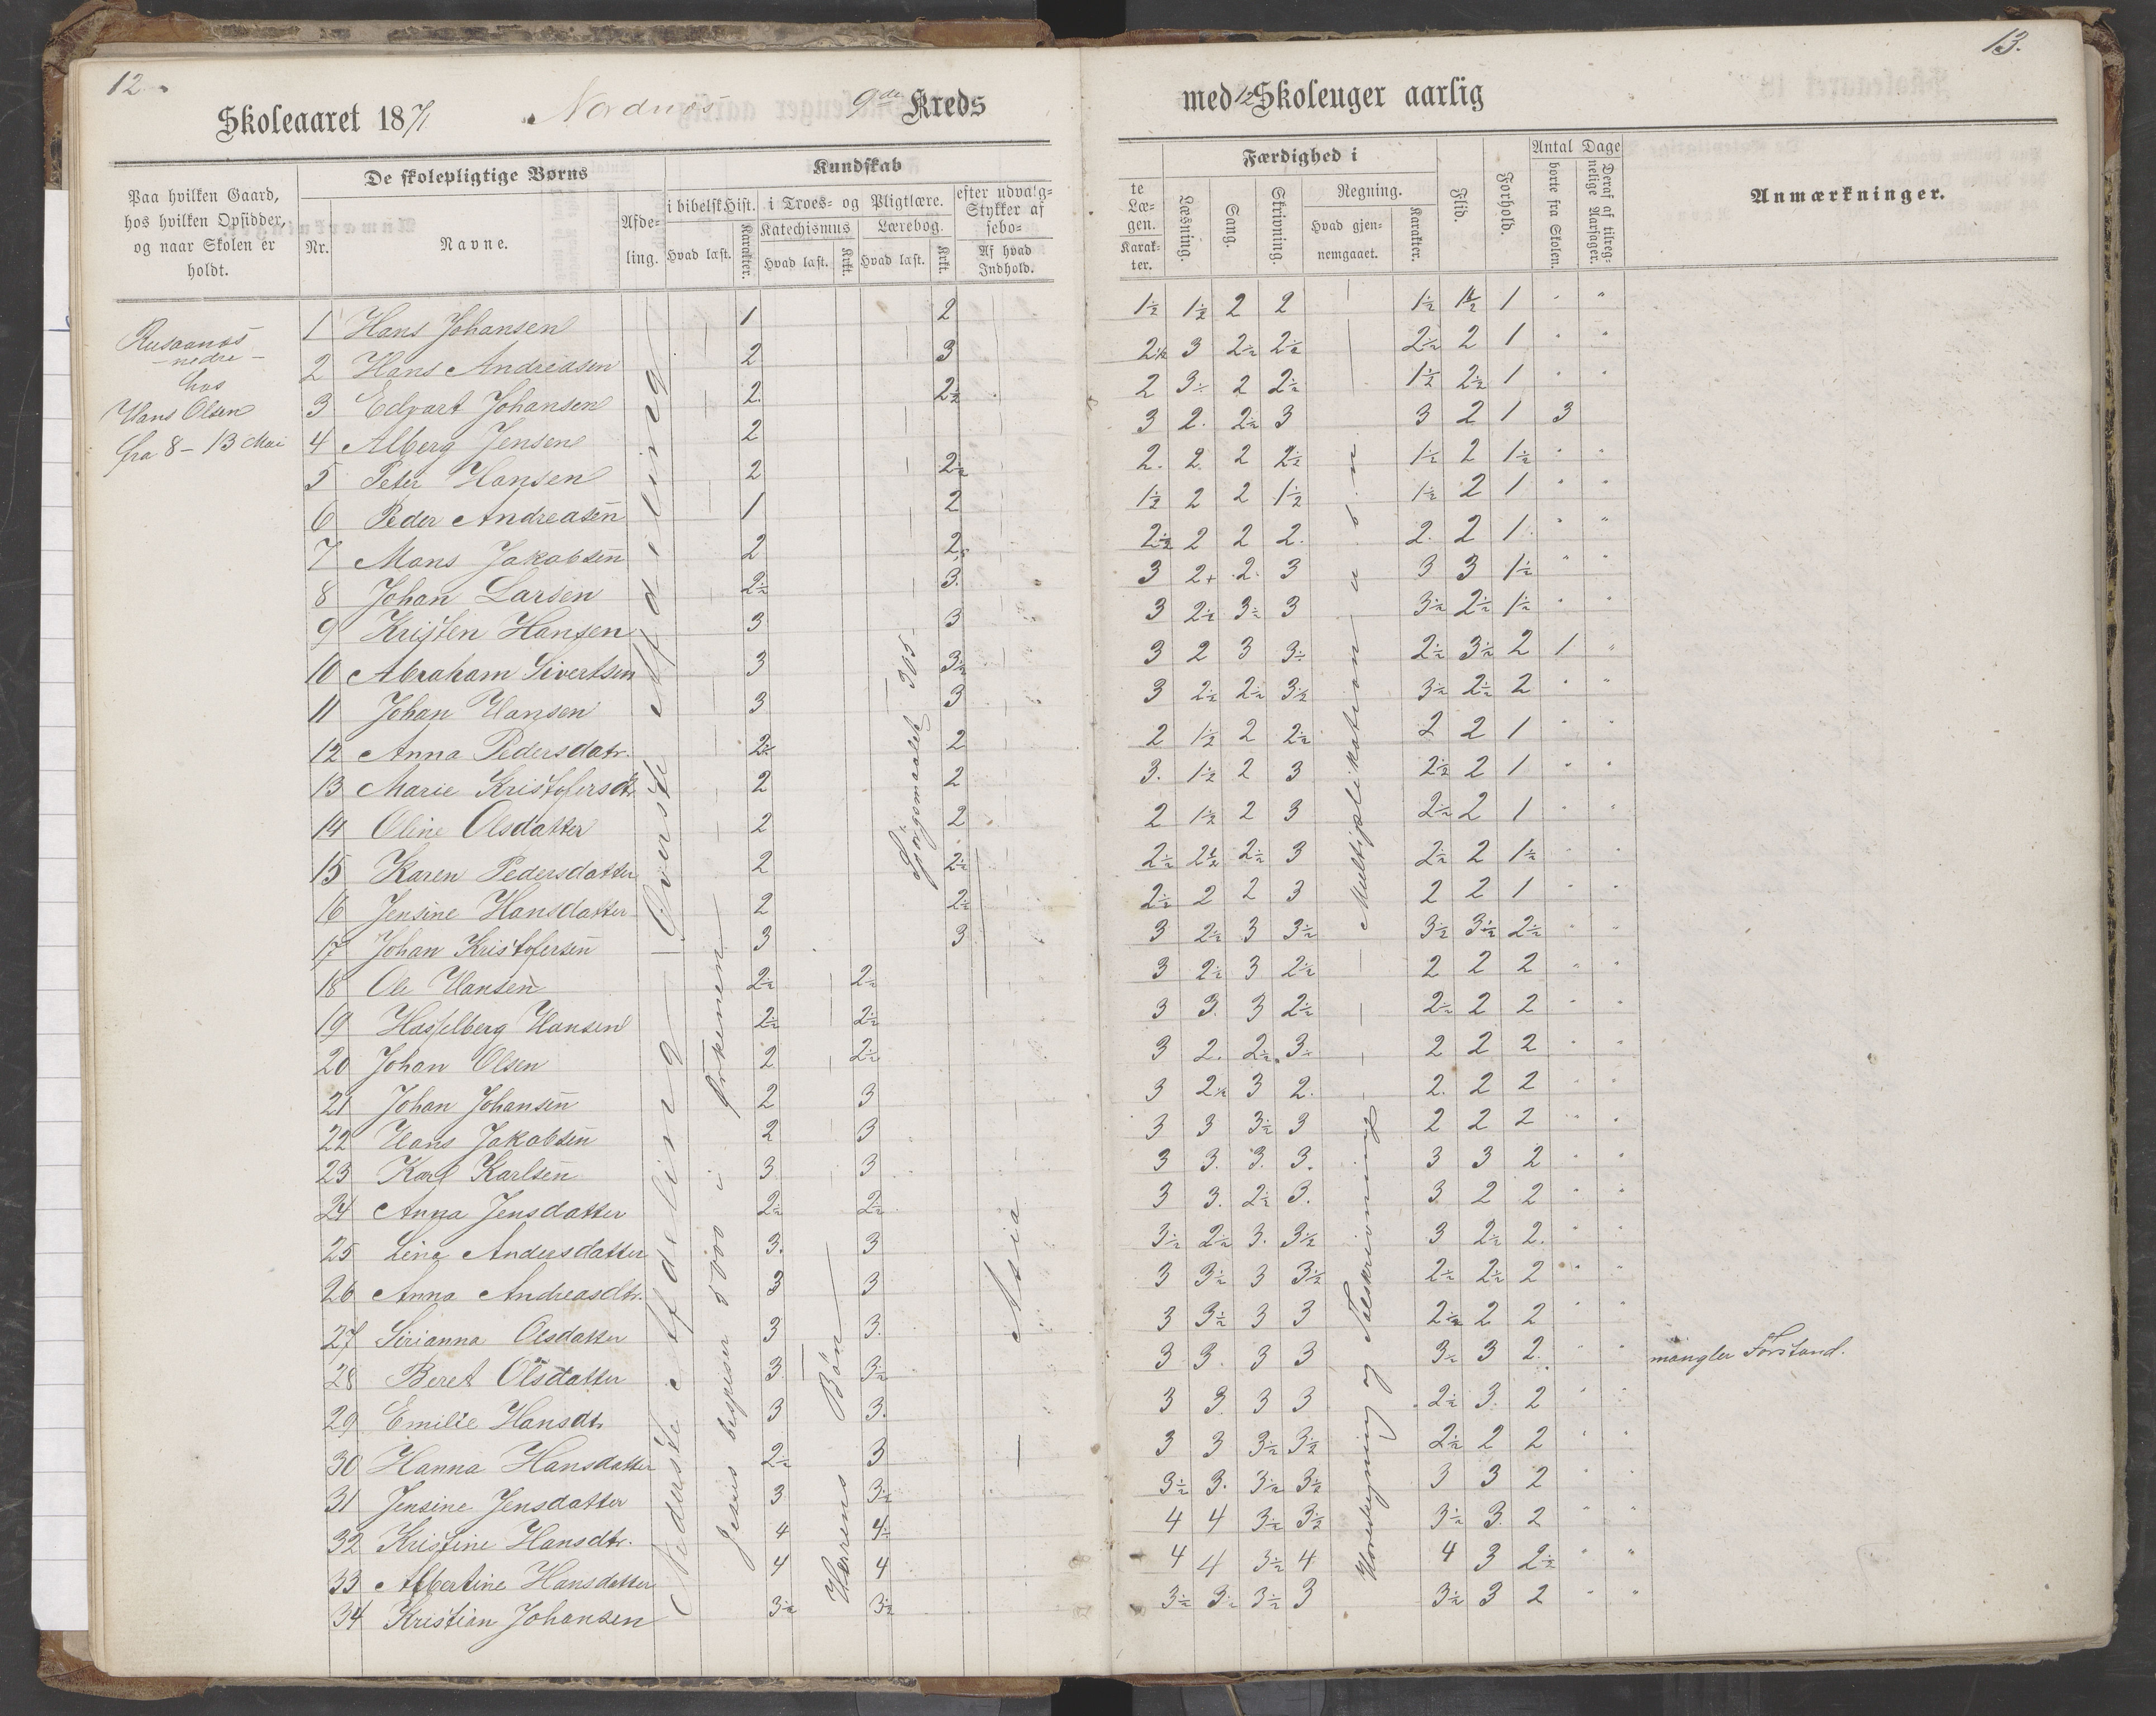 12
13.
Skoleaaret 1871 Nordnæs 9de Kreds med 12 Skoleuger aarlig
Paa hvilken Gaard, hos hvilken Opsidder, og naar Skolen er holdt.
De skolepligtige Børns
Nr.
Navne.
Afdeling.
Kundskab
i bibelsk Hist.
Hvad læst.
Karakter.
i Troes- og Pligtlære.
Katechismus
Hvad læst.
Krkt.
Lærebog.
Hvad læst.
Krkt.
efter udvalgte Stykker af Læsebogen.
Af hvad Indhold.
Karakter.
Færdighed i
Læsning.
Sang.
Skrivning.
Regning.
Hvad gjennemgaaet.
Karakter.
Flid.
Forhold.
Antal Dage
borte fra Skolen.
Deraf af tilregnelige Aarsager.
Anmærkninger.
Rusaanæs
- nedre -
hos
Hans Olsen
fra 8 - 13 Mai
1 Hans Johansen 1 2 1½ 1½ 2 2 1½ 1½ 1 " "
2 Hans Andreasen 2 3 2½ 3 2½ 2½ 2½ 2 1 " "
3 Edvart Johansen 2 2½ 2 3½ 2 2½ 1½ 2½ 1 " "
4 Alberg Jensen 2 3 2 2½ 3 3 2 1 3
5 Peter Hansen 2 2½ 2 2 2 2½ 1½ 2 1½ " "
6 Peder Andreasen 1 2 1½ 2 2 1½ 1½ 2 1 " "
7 Mons Jakobsen 2 2,5 2½ 2 2 2 2 2 1 " "
8 Johan Larsen 2½ 3 3 2+ 2 3 3 3 1½ " "
9 Kristen Hansen 3 3 3 2½ 3½ 3 3½ 2½ 1½ " "
10 Abraham Sivertsen 3 3½ 3 2 3 3½ 2½ 3½ 2 1 "
11 Johan Hansen 3 3 3 2½ 2½ 3½ 3½ 2½ 2 " "
12 Anna Pedersdatr. 2½ 2 2 1½ 2 2½ 2 2 1 " "
13 Marie Kristofersdtr 2 2 3 1½ 2 3 2½ 2 1 " "
14 Oline Olsdatter 2 2 2 1½ 2 3 2½ 2 1 " "
15 Karen Pedersdatter 2 2½ 2½ 2½ 2½ 3 2½ 2 1½ " "
16 Jensine Hansdatter 2 2½ 2½ 2 2 3 2 2 1 " "
17 Johan Kristofersen 3 3 3 2½ 3 3½ 3½ 3½ 2½ " "
18 Ole Hansen 2½ 2½ 3 2½ 3 2½ 2 2 2 " "
19 Hasselberg Hansen 2½ 2½ 3 3 3 2½ 2½ 2 2 " "
20 Johan Olsen 2 2½ 3 2 2½ 3 2 2 2 " "
21 Johan Johansen 2 3 3 2½ 3 2 2 2 2 " "
22 Hans Jakobsen 2 3 3 3 3½ 3 2 2 2 " "
23 Karl Karlsen 3 3 3 3 3 3 3 3 2 " "
24 Anna Jensdatter 2½ 2½ 3 3 2½ 3 3 2 2 " "
25 Line Andersdatter 3 3 3½ 2½ 3 3½ 3 2½ 2 " "
26 Anna Andreasdtr. 3 3 3 3½ 3 3½ 2½ 2½ 2 " "
27 Sirianna Olsdatter 3 3 3 3½ 3 3 2½ 2 2 " "
28 Beret Olsdatter 3 3½ 3 3 3 3 3½ 3 2 " " mangler Forstand.
29 Emilie Hansdtr 3 3 3 3 3 3 2½ 3 2 " "
30 Hanna Hansdatter 2½ 3 3 3 3½ 3½ 2½ 2 2 " "
31 Jensine Jensdatter 3 3½ 3½ 3 3½ 3½ 3 3 2 " "
32 Kristine Hansdtr. 4 4½ 4 4 3½ 3½ 3½ 3 2 " "
33 Albertine Hansdatter 4 4 4 4 3½ 4 4 3 2½ " "
34 Kristian Johansen 3½ 3½ 3½ 3½ 3½ 3 3½ 3 2 " "
Øverste Afdeling
Nederste Afdeling
Jesus bespiser 5000 i Ørkenen
Herrens Bøn
Spørgsmaalet
Asia
Multiplikation
Hovedregning og Talskrivning